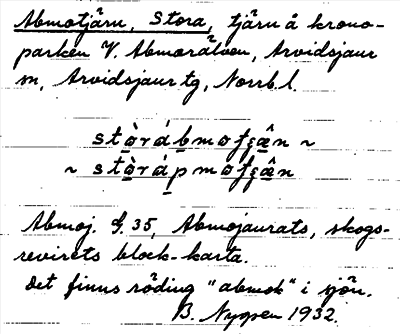 Abmotjärn, Stora, tjärn å krono-
parken V. Abmorälven, Arvidsjaur
sn, Arvidsjaur tg, Norrb. l.
~
~
Abmoj. G. 35, Abmojaurats, skogs-
revirets block-karta.
Det finns röding "abmok" i sjön.
B. Nygren 1932.